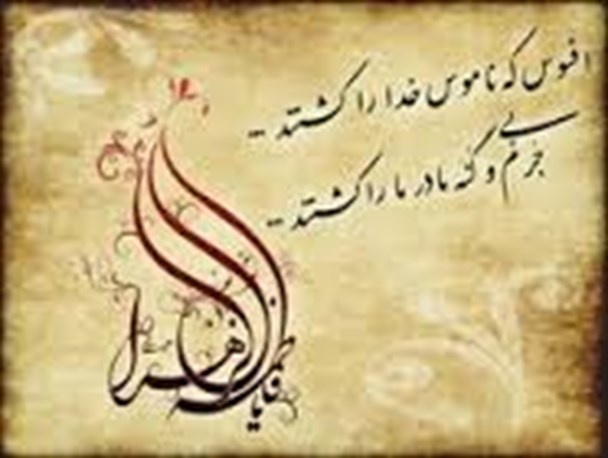 افسوس که ناموس خدا را کشتند ..
بی جرم و گنه مادر ما را کشتند ..
یا فاطمة الزهرا